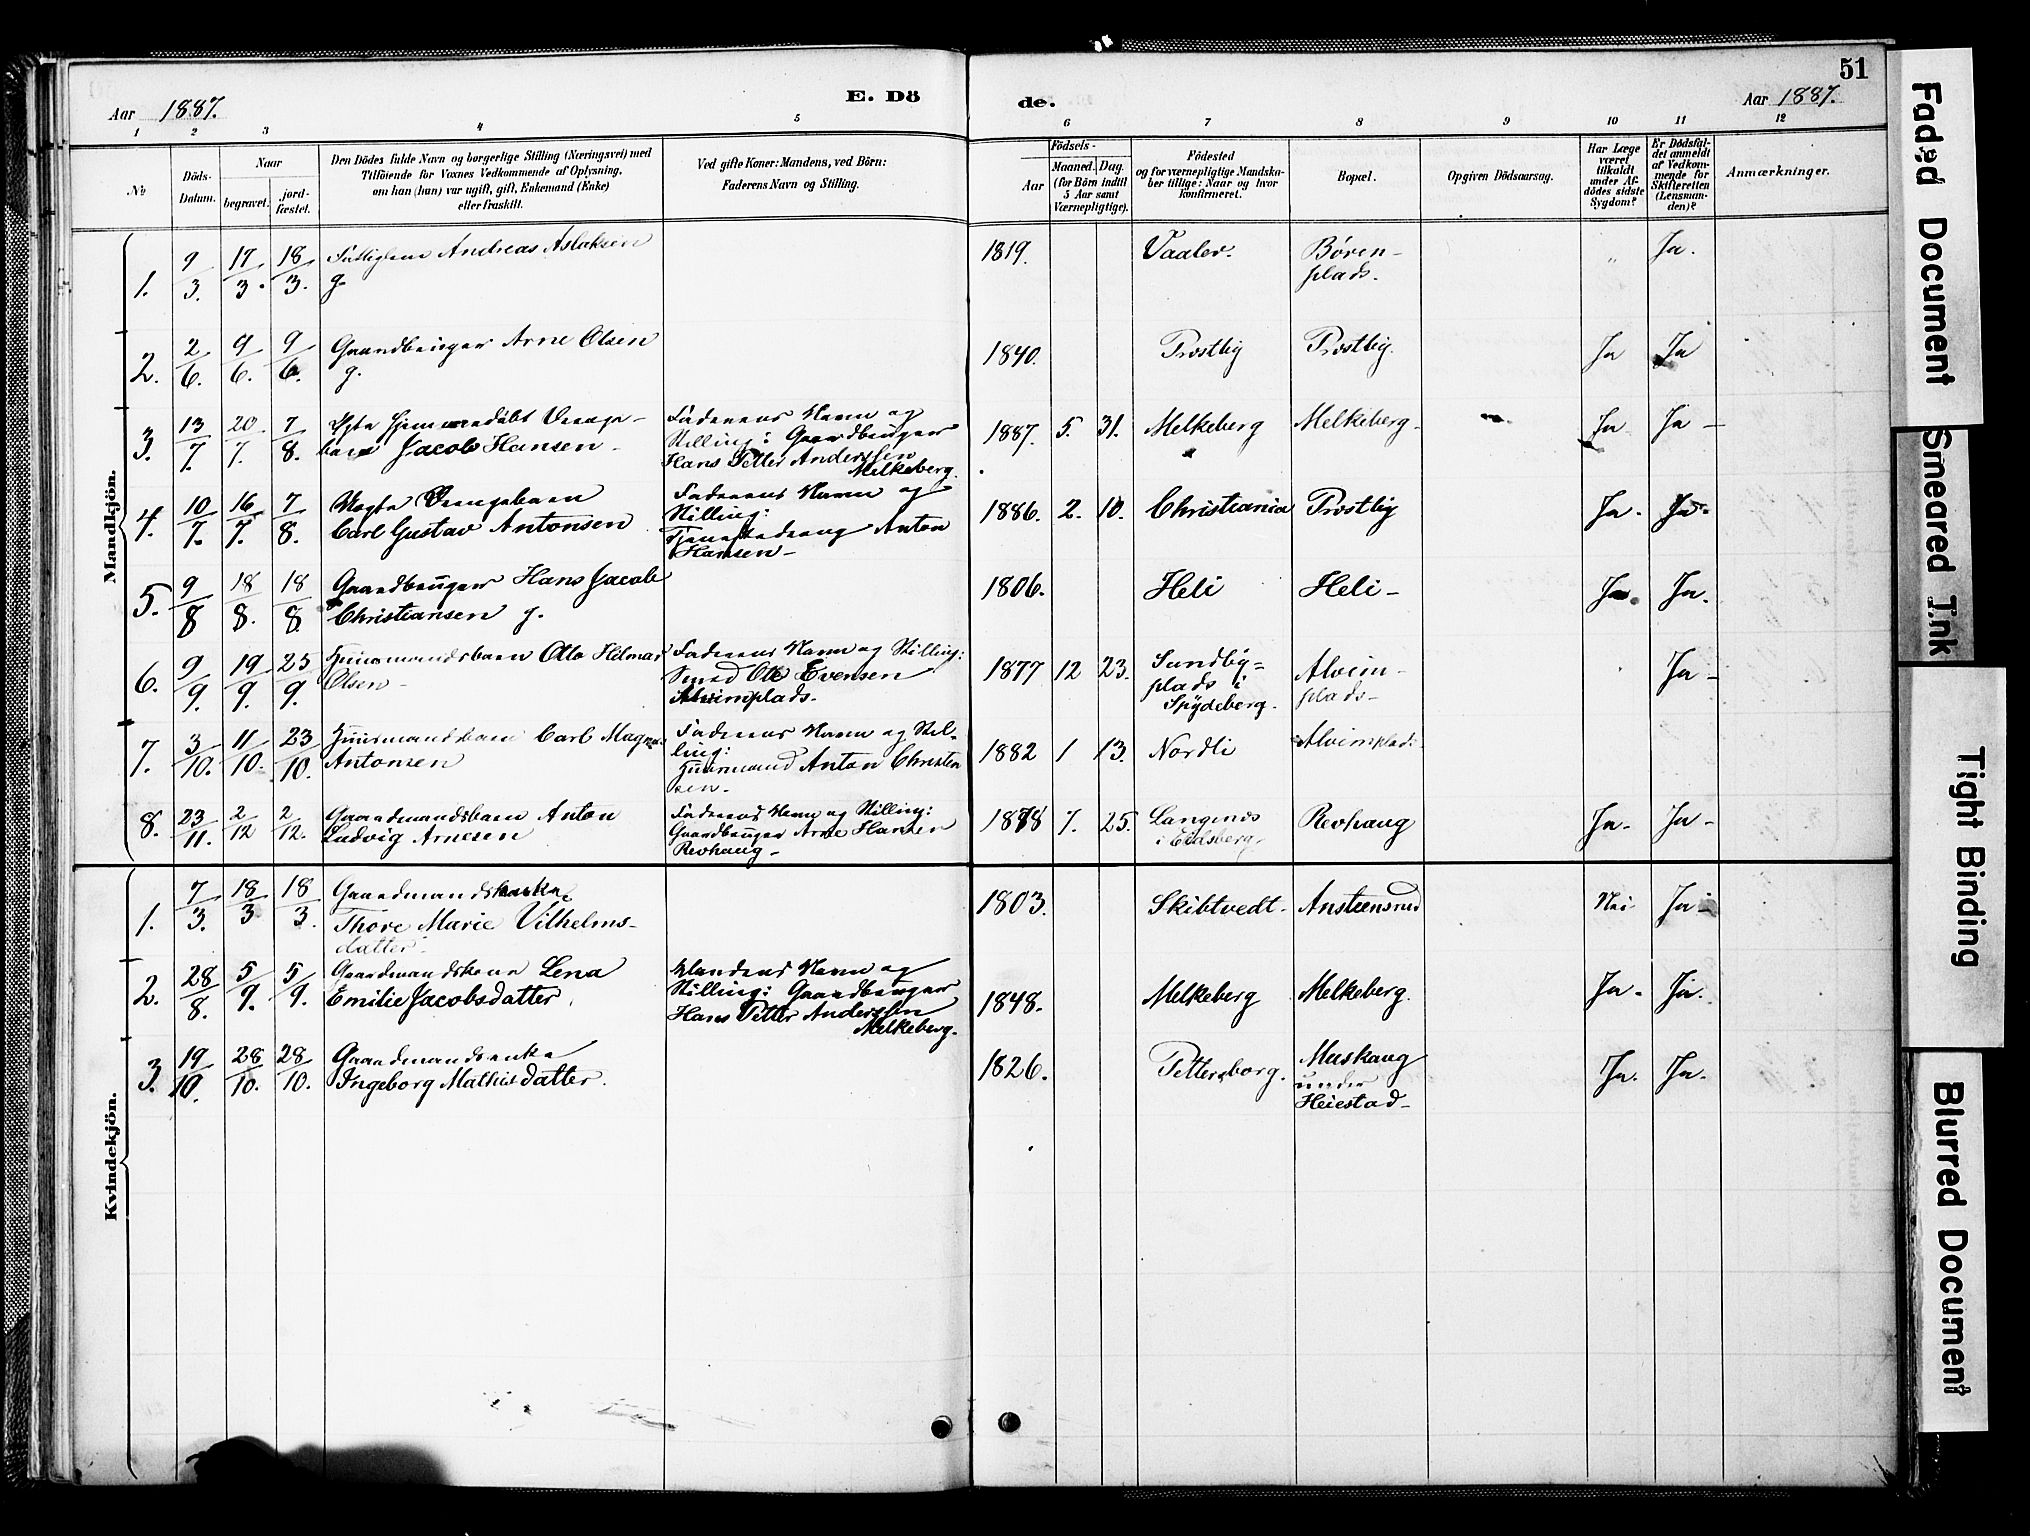 51
Aar 1887.
E. Dö
de.
Aar 1887.
1 2 3 4 5 6 7 8 9 10 11 12
No
Döds-
Datum.
Naar
begravet.
jord-
fæstet.
Den Dödes fulde Navn og borgerlige Stilling (Næringsvei) med
Tilföiende for Voxnes Vedkommende af Oplysning,
om han (hun) var ugift, gift, Enkemand (Enke)
eller fraskilt.
Ved gifte Koner: Mandens, ved Börn:
Faderens Navn og Stilling.
Födsels-
Aar
Maaned. Dag.
(for Börn indtil
5 Aar samt
Værnepligtige).
Födested
og for værnepligtige Mandska-
ber tillige: Naar og hvor
konfirmeret.
Bopæl.
Opgiven Dödsaarsag.
Har Læge
været
tilkaldt
under Af-
dödes sidste
Sygdom?
Er Dödsfal-
det anmeldt
af Vedkom-
mende for
Skifteretten
(Lensman-
den)?
Anmærkninger.
Mandkjön.
1. 9/3. 17/3. 18/3. Andreas Aslaksen
g.
1819. Vaaler. Bören-
plads. " Ja.
2. 2/6. 9/6. 9/6. Gaardbruger Arne Olsen
g.
1840. Prostby Prostby. Ja Ja
3. 13/7. 20/7. 7/8. Ægte hjemmedöbt Drenge-
barn Jacob Hansen -
Faderens Navn og
Stilling: Gaardbruger
Hans Petter Anderssen
Melkeberg.
1887. 5. 31. Melkeberg Melkeberg. Ja Ja -
4. 10/7. 16/7. 7/8. Uægte Drengebarn
Carl Gustav Antonsen
Faderens Navn og
Stilling:
Anton
Hansen -
1886. 2. 10. Christiania Prostby Ja. Ja.
5. 9/8 18/8. 18/8. Gaardbruger Hans Jacob
Christiansen g.
1806. Heli Heli - Ja. Ja.
6. 9/9. 19/9. 25/9. Husmandsbarn Otto Hilmar
Olsen -
Faderens Navn og Stilling:
Smed Ole Evensen
Alvimplads.
1877 12 23. Sundby=
plads i
Spydeberg. Alvim-
plads - Ja -
7. 3/10. 11/10. 23/10. Husmandsbarn Carl Magnus
Antonsen
Faderens Navn og Stil-
ling:
Husmand Anton Christen
sen.
1882 1 13. Nordli Alvimplads
8. 23/11. 2/12 2/12. Gaardmandsbarn Anton
Ludvig Arnesen
Faderens Navn og Stilling:
Gaardbruger Arne Hansen
Revhaug -
1878 7. 25. Langenes
i Eidsberg. Revhaug Ja. Ja -
Kvindekjön.
1. 7/3. 18/3 18/3. Gaardmandsenke
Thore Marie Vilhelms-
datter.
1803. Skibtvedt. Ansteensrud Nei Ja -
2. 28/8. 5/9. 5/9. Gaardmandskone Lena
Emilie Jacobsdatter.
Mandens Navn og
Stilling: Gaardbruger
Hans Petter Anderssen
Melkeberg.
1848. Melkeberg Melkeberg. Ja. Ja.
3. 19/10. 28/10. 28/10. Gaardmandsenke
Ingeborg Mathisdatter.
1826. Pettersborg. Muskaug
under
Heiestad - Ja. Ja.
Faded Document
Smeared Ink
Tight Binding
Blurred Document